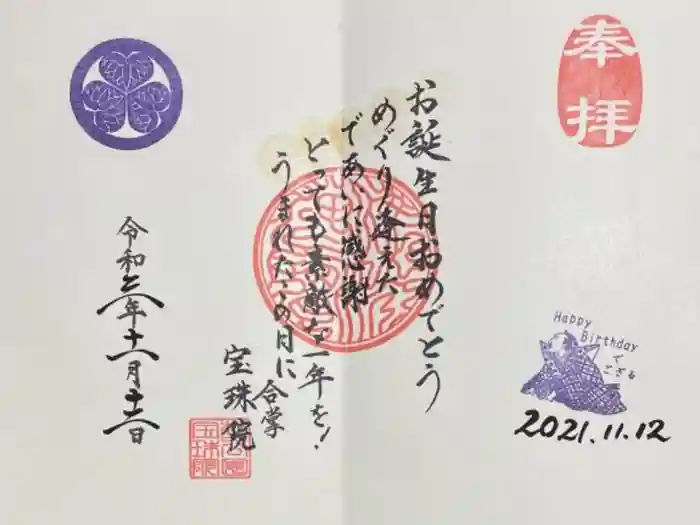 奉拝
Happy
Birthday
で
ござる
2021.11.12
お誕生日おめでとう
めぐり逢えた
であいに感謝
とっても素敵な一年を!
うまれたこの日に
合掌
宝珠院
令和三年十一月十二日